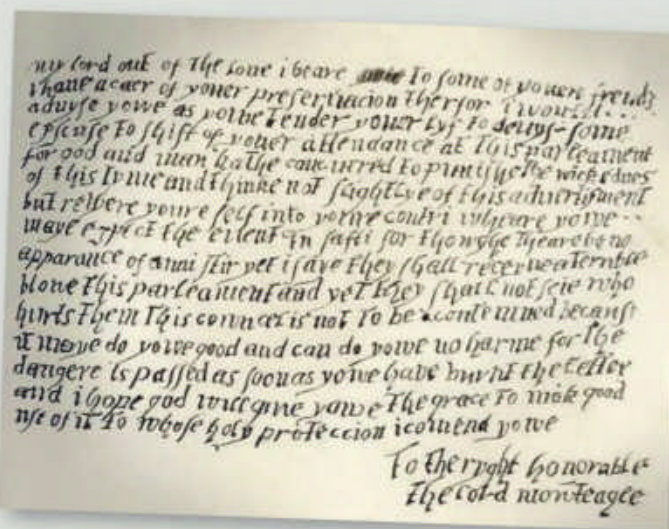 my lord out of the loue i beare to some of youer frends
i haue a caer of youer preseruacion therfor i would...
aduyse yowe as yowe tender youer lyf to deuys some
epscuse to shift of youer attendance at this parleament
for god and man hathe concurred to punishe the wickednes
of this tyme and thinke not slightlye of this aduertisment
but retyere youre self into youre contri wheare yowe ..
maye expect the euent in safti for thowghe theare be no
apparance of anni stir yet i saye they shall receyue a terrible
blowe this parleament and yet they shall not seie who
hurts them this councel is not to be contemned because
it maye do yowe good and can do yowe no harme for the
dangere is passed as soon as yowe haue burnt the letter
and i hope god will giue yowe the grace to mak good
use of it to whose holy proteccion i comend yowe
To the ryght honorable
the lord mowteagle